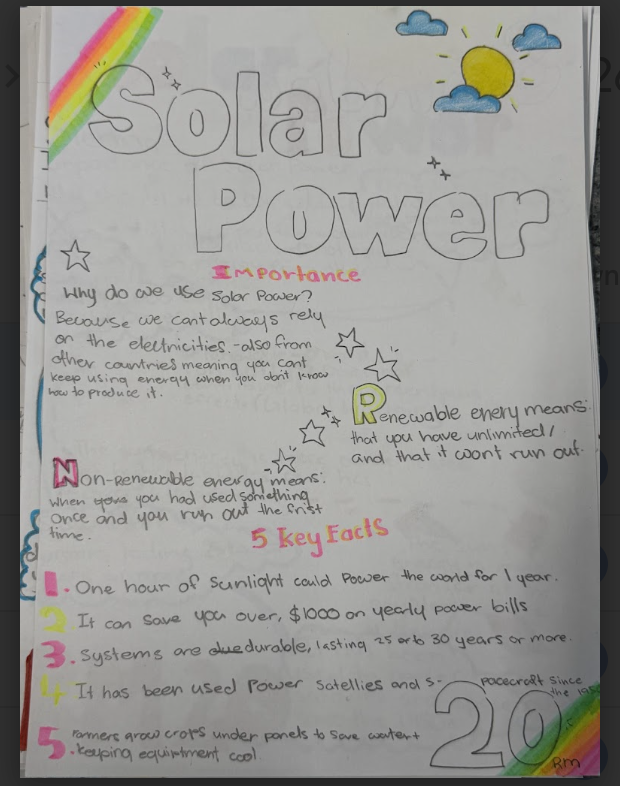 Solar
Power
Importance
Why do we use Solar Power?
Because we cant always rely
on the electricities.-also from
other countries meaning you cant
keep using energy when you don't know
how to produce it.
Renewable enery means:
that you have unlimited/
and that it won't run out.
Non-renewable energy means:
when you had used something
once and you run out the frist
time.
5 key Facts
1. One hour of Sunlight could Power the world for 1 year.
2 It can save you over, $1000 on yearly power bills
3. Systems are due durable, lasting 25 or to 30 years or more.
4 It has been used Power Satellies and s- pacecraft since
the 195
5 Farmers grow crops under panels to save water +
. keeping equirtment cool
20
RM